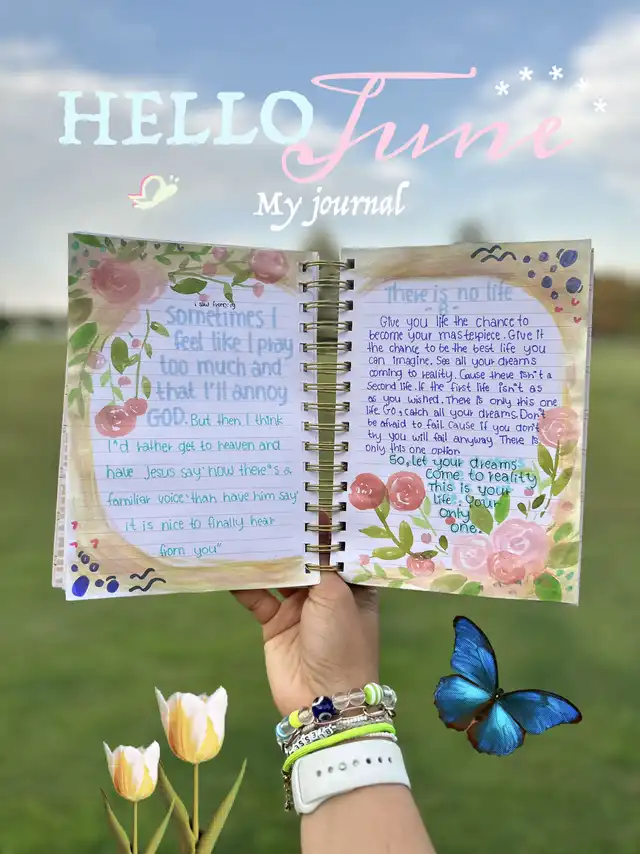 HELLO June
My journal
i saw from tag
Sometimes I
feel like I pray
too much and
that I'll annoy
GOD. But then I think
I"d rather get to heaven and
have Jesus say "now there"s a
familiar voice" than have him say"
it is nice to finally hear
from you"
There is no life
-B-
Give you life the chance to
become your masterpiece. Give it
the chance to be the best life you
can imagine. See all your dreams
coming to reality. Cause there isn't a
Second life. If the first life isn't as
as you wished. There is only this one
life. Go, catch all your dreams. Don't
be afraid to fail. Cause if you don't
try you will fail anyway. There is
only this one option
So, let your dreams
come to reality
This is your
life. your
only
one.
BLESSED